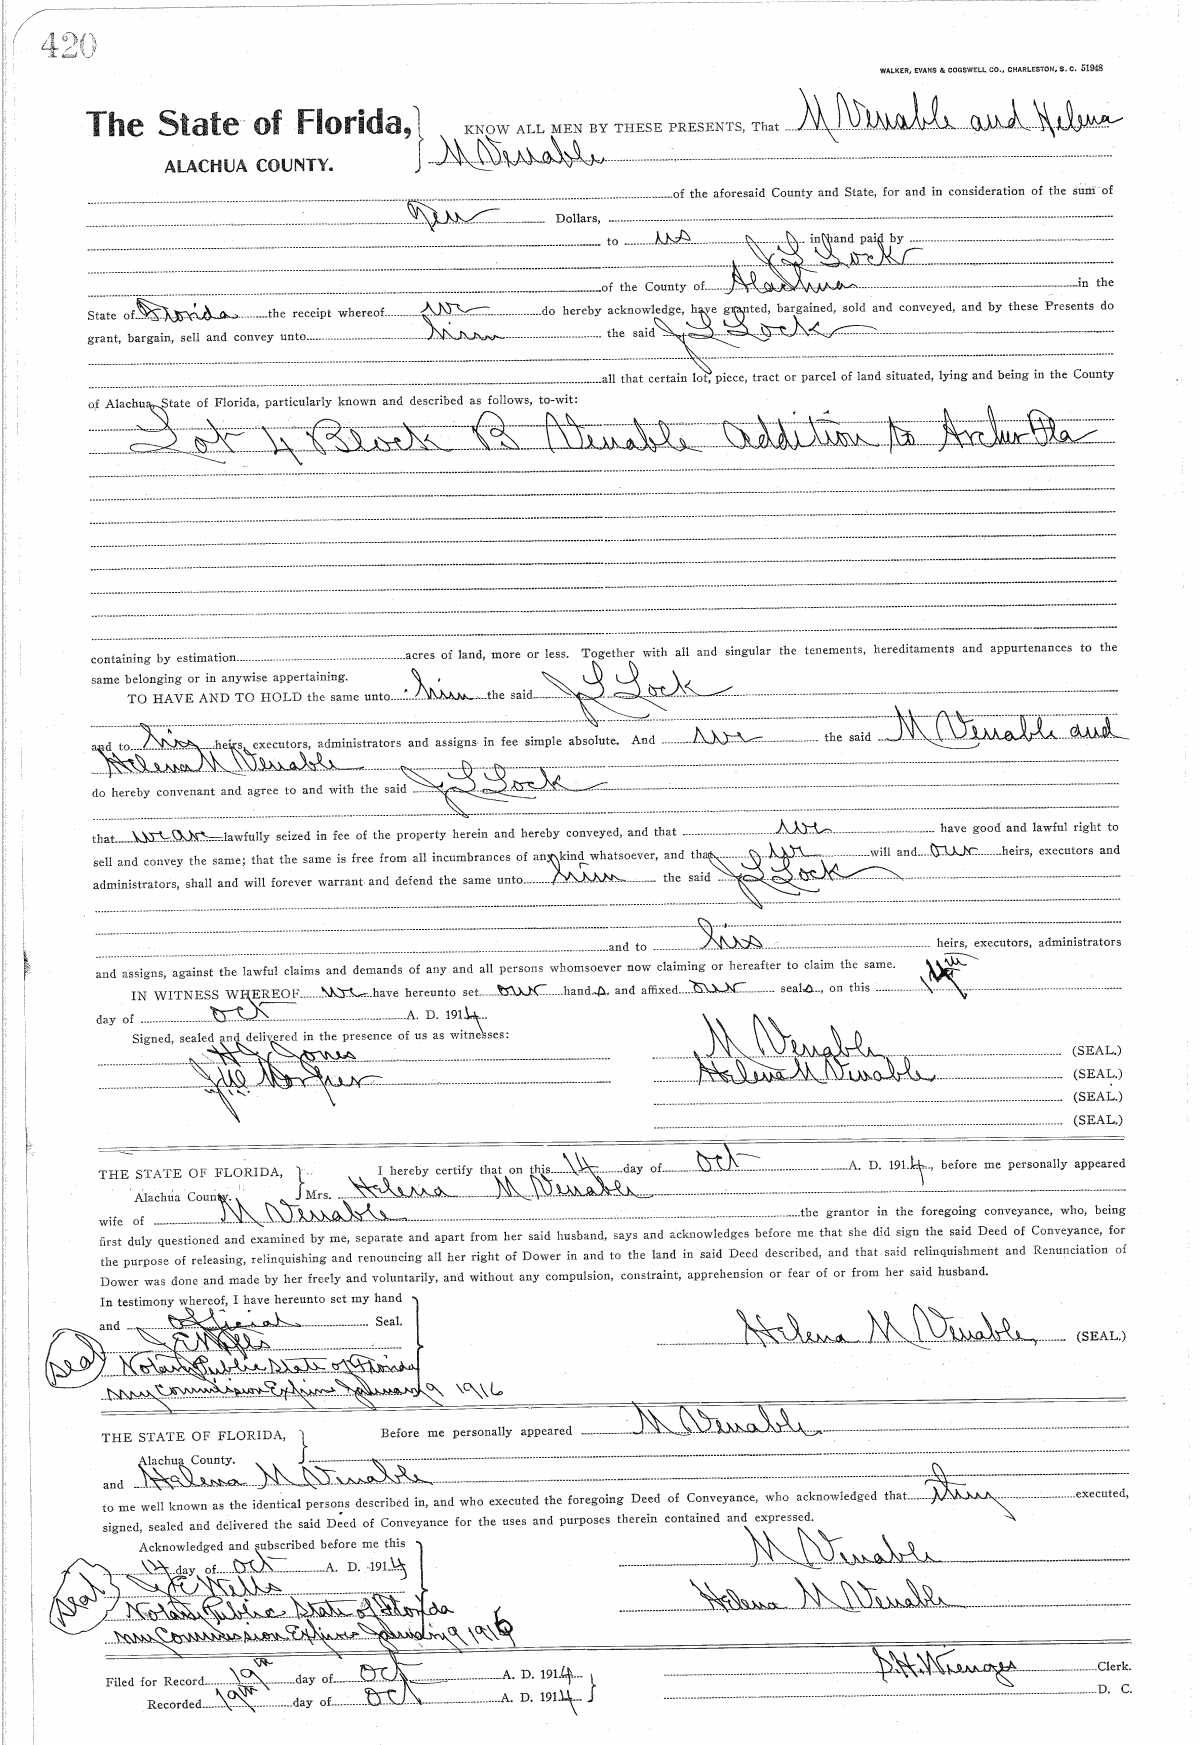 420
WALKER, EVANS & COGSWELL CO., CHARLESTON, S. C. 51948
The State of Florida, KNOW ALL MEN BY THESE PRESENTS, That M Venable and Helena
ALACHUA COUNTY. M Venable
of the aforesaid County and State, for and in consideration of the sum of
Ten Dollars,
to us in hand paid by
J L Lock
of the County of Alachua in the
State of Florida the receipt whereof we do hereby acknowledge, have granted, bargained, sold and conveyed, and by these Presents do
grant, bargain, sell and convey unto him the said J L Lock
all that certain lot, piece, tract or parcel of land situated, lying and being in the County
of Alachua, State of Florida, particularly known and described as follows, to-wit:
Lot 4 Block B Venable addition to Archer Fla
containing by estimation acres of land, more or less. Together with all and singular the tenements, hereditaments and appurtenances to the
same belonging or in anywise appertaining.
TO HAVE AND TO HOLD the same unto him the said J L Lock
and to his heirs, executors, administrators and assigns in fee simple absolute. And we the said M Venable and
Helena M Venable
do hereby convenant and agree to and with the said J L Lock
that we are lawfully seized in fee of the property herein and hereby conveyed, and that we have good and lawful right to
sell and convey the same; that the same is free from all incumbrances of any kind whatsoever, and that we will and our heirs, executors and
administrators, shall and will forever warrant and defend the same unto him the said J L Lock
and to his heirs, executors, administrators
and assigns, against the lawful claims and demands of any and all persons whomsoever now claiming or hereafter to claim the same.
IN WITNESS WHEREOF we have hereunto set our hands and affixed our seals, on this 14th
day of Oct A. D. 1914
Signed, sealed and delivered in the presence of us as witnesses:
Jones M Venable (SEAL.)
Helena M Venable (SEAL.)
(SEAL.)
(SEAL.)
THE STATE OF FLORIDA, I hereby certify that on this 14 day of Oct A. D. 1914, before me personally appeared
Alachua County. Mrs. Helena M Venable
wife of M Venable the grantor in the foregoing conveyance, who, being
first duly questioned and examined by me, separate and apart from her said husband, says and acknowledges before me that she did sign the said Deed of Conveyance, for
the purpose of releasing, relinquishing and renouncing all her right of Dower in and to the land in said Deed described, and that said relinquishment and Renunciation of
Dower was done and made by her freely and voluntarily, and without any compulsion, constraint, apprehension or fear of or from her said husband.
In testimony whereof, I have hereunto set my hand
and official Seal.
Seal Wells Helena M Venable (SEAL.)
Notary Public State of Florida
My Commission Expires January 9 1916
THE STATE OF FLORIDA, Before me personally appeared M Venable
Alachua County.
and Helena M Venable
to me well known as the identical persons described in, and who executed the foregoing Deed of Conveyance, who acknowledged that they executed,
signed, sealed and delivered the said Deed of Conveyance for the uses and purposes therein contained and expressed.
Acknowledged and subscribed before me this
14 day of Oct A. D. 1914 M Venable
Seal Wells Helena M Venable
Notary Public State of Florida
My Commission Expires January 9 1916
S. H. Wienges Clerk.
Filed for Record 19th day of Oct A. D. 1914
Recorded 19th day of Oct A. D. 1914 D. C.